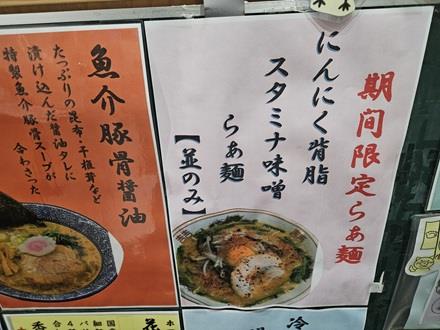 期間限定らぁ麺
にんにく背脂
スタミナ味噌
らぁ麺
【並のみ】
魚介豚骨醤油
たっぷりの昆布・干椎茸など
漬け込んだ醤油タレに
特製魚介豚骨スープが
合わさった
冷